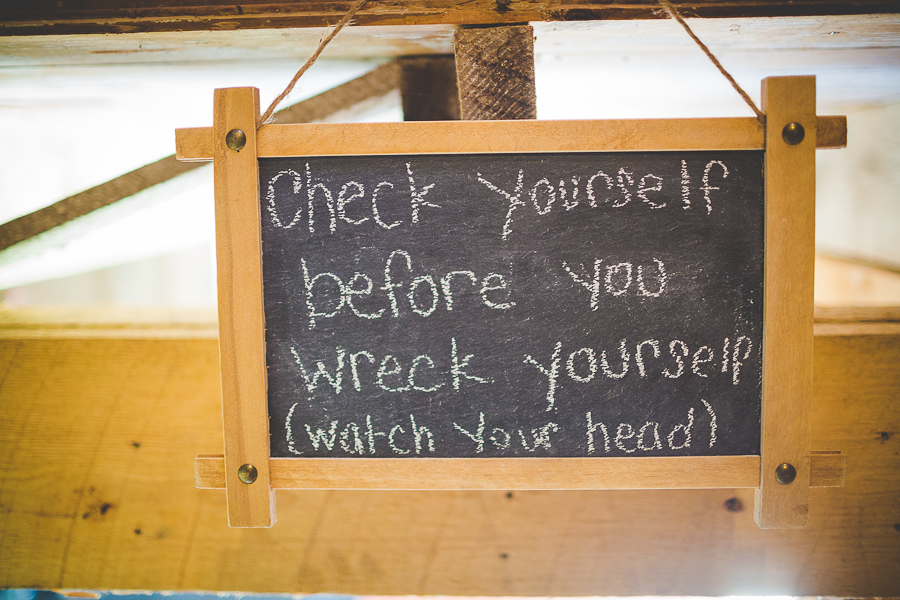 Check yourself
before you
wreck yourself
(watch your head)